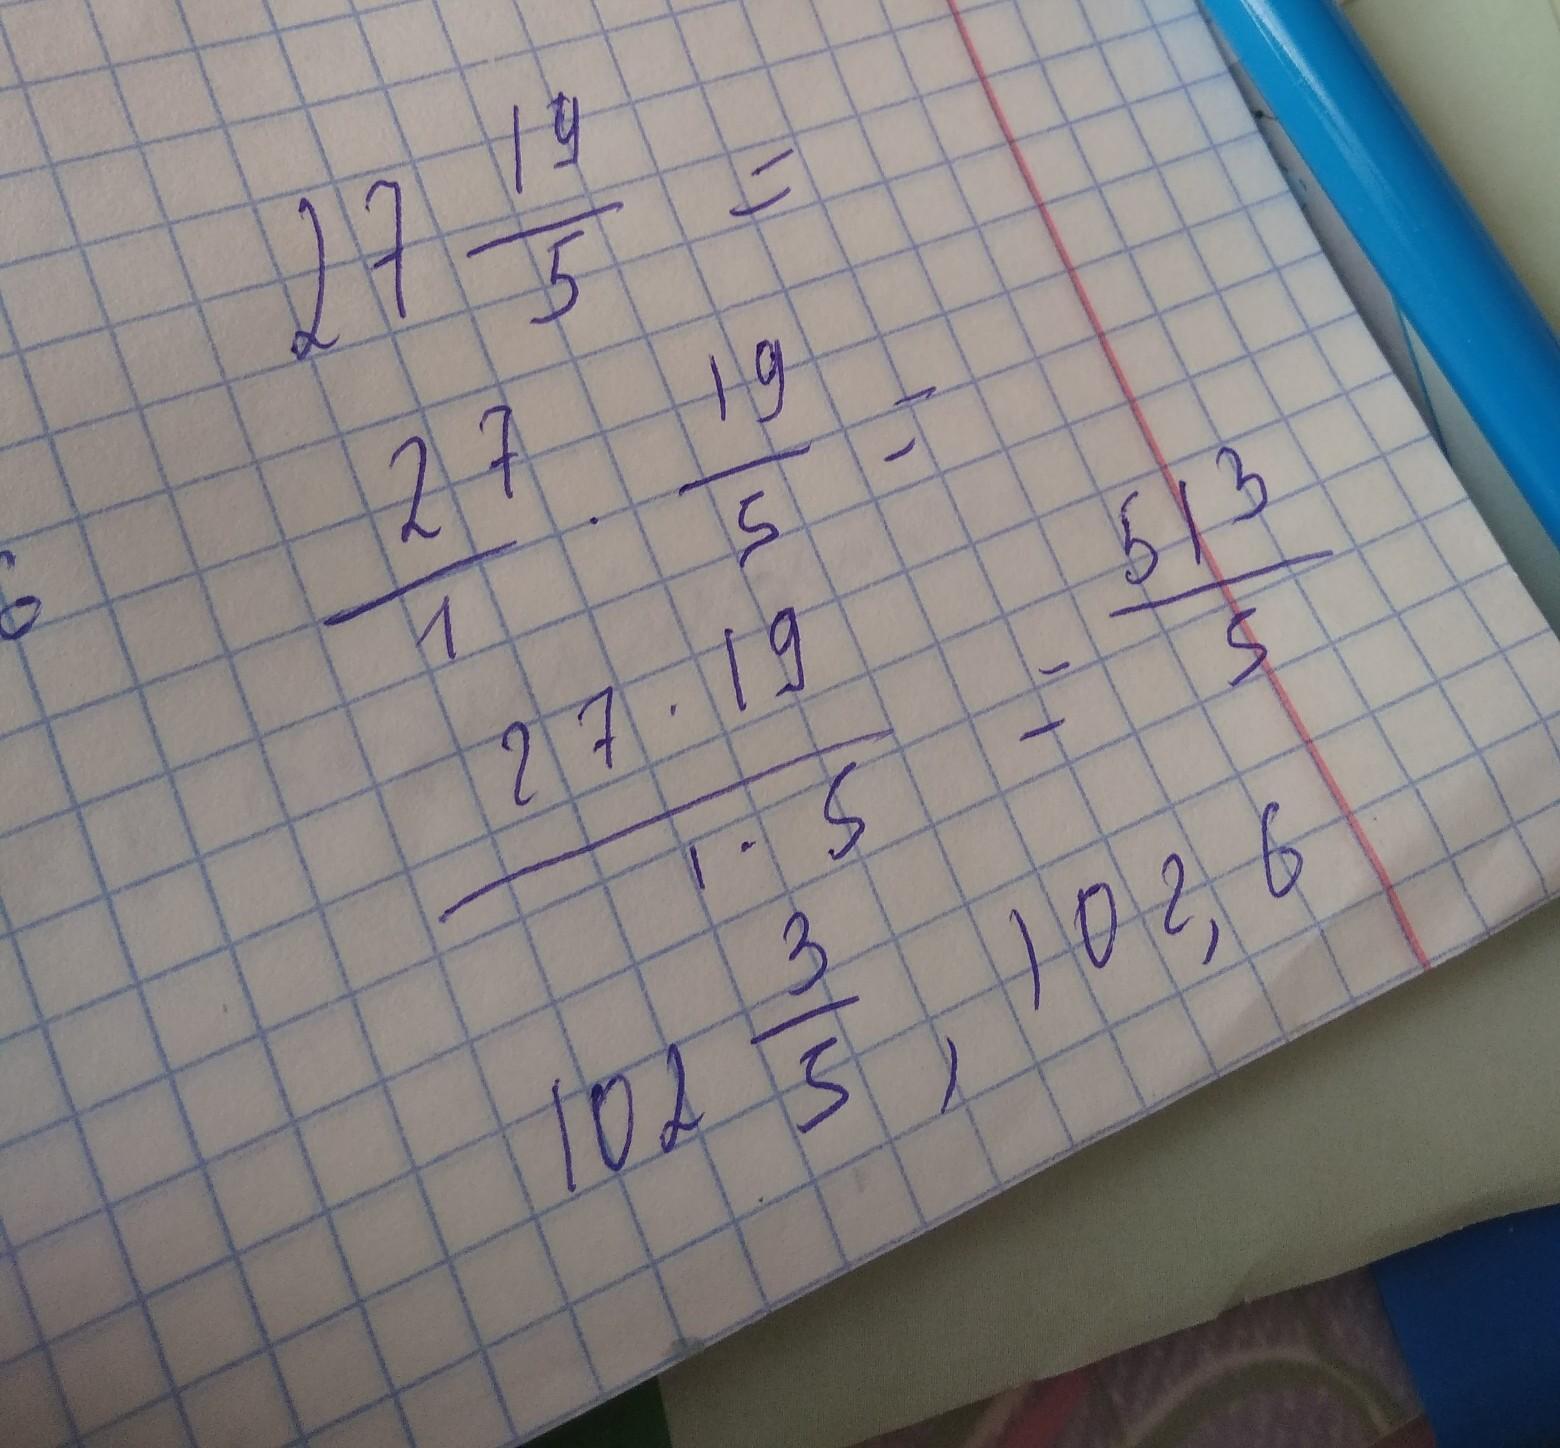 27 19/5 =
27/1 · 19/5 =
27 · 19 / 1 · 5 = 513/5
102 3/5 , 102,6
6